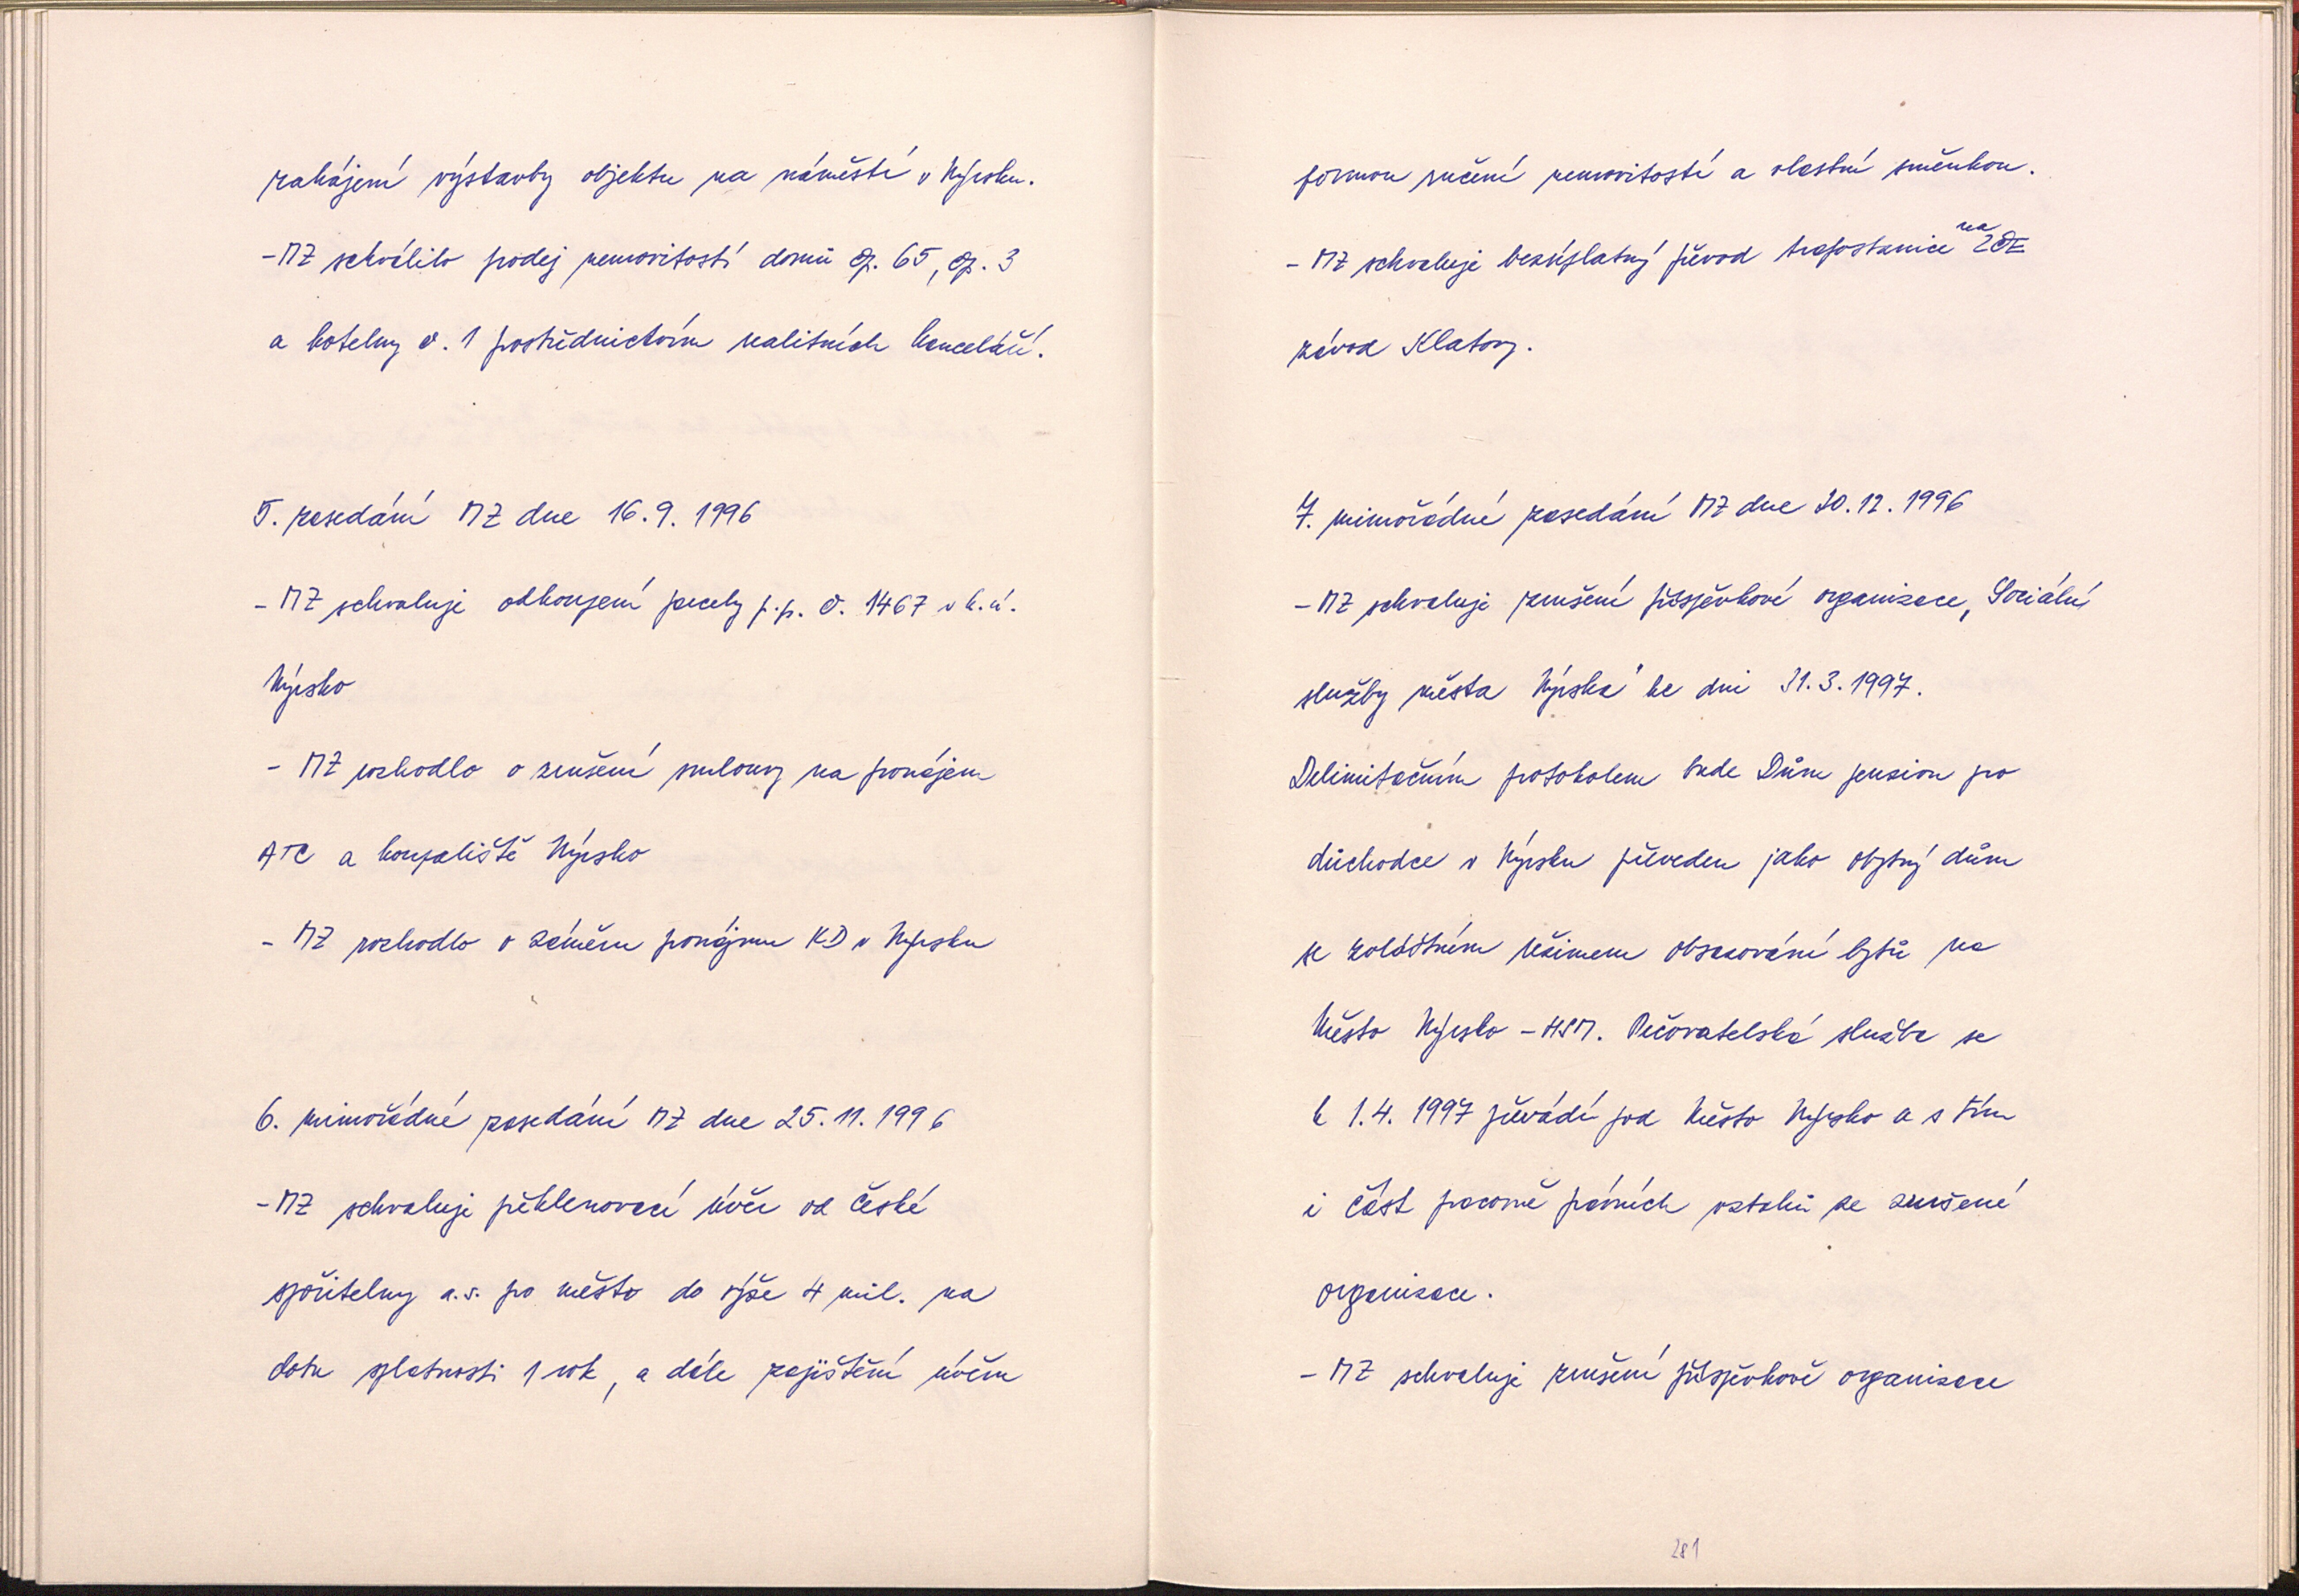 zahájení výstavby objektu na náměstí v Nýrsku.
- MZ schválilo prodej nemovitostí domů čp. 65, čp. 3
a kotelny č. 1 prostřednictvím realitních kanceláří.
5. zasedání MZ dne 16.9. 1996
- MZ schvaluje odkoupení parcely p.p. č. 1467 v k.ú.
Nýrsko
- MZ rozhodlo o zrušení smlouvy na pronájem
ATC a koupaliště Nýrsko
- MZ rozhodlo o záměru pronájmu KD v Nýrsku
6. mimořádné zasedání MZ dne 25.11.1996
- MZ schvaluje překlenovací úvěr od České
spořitelny a.s. pro město do výše 4 mil. na
dobu splatnosti 1 rok, a dále zajištění úvěru
formou ručení nemovitostí a vlastní směnkou.
- MZ schvaluje bezúplatný převod trafostanice na ZČE
závod Klatovy.
7. mimořádné zasedání MZ dne 30.12.1996
- MZ schvaluje zrušení příspěvkové organizace, Sociální
služby města Nýrska" ke dni 31.3.1997.
Delimitačním protokolem bude Dům pension pro
důchodce v Nýrsku převeden jako obytný dům
se zvláštním režimem obsazování bytů na
Město Nýrsko - HSM. Pečovatelská služba se
k 1.4. 1997 převádí pod Město Nýrsko a s tím
i část pracovně právních vztahů ze zrušené
organizace.
- MZ schvaluje zrušení příspěvkové organizace
281